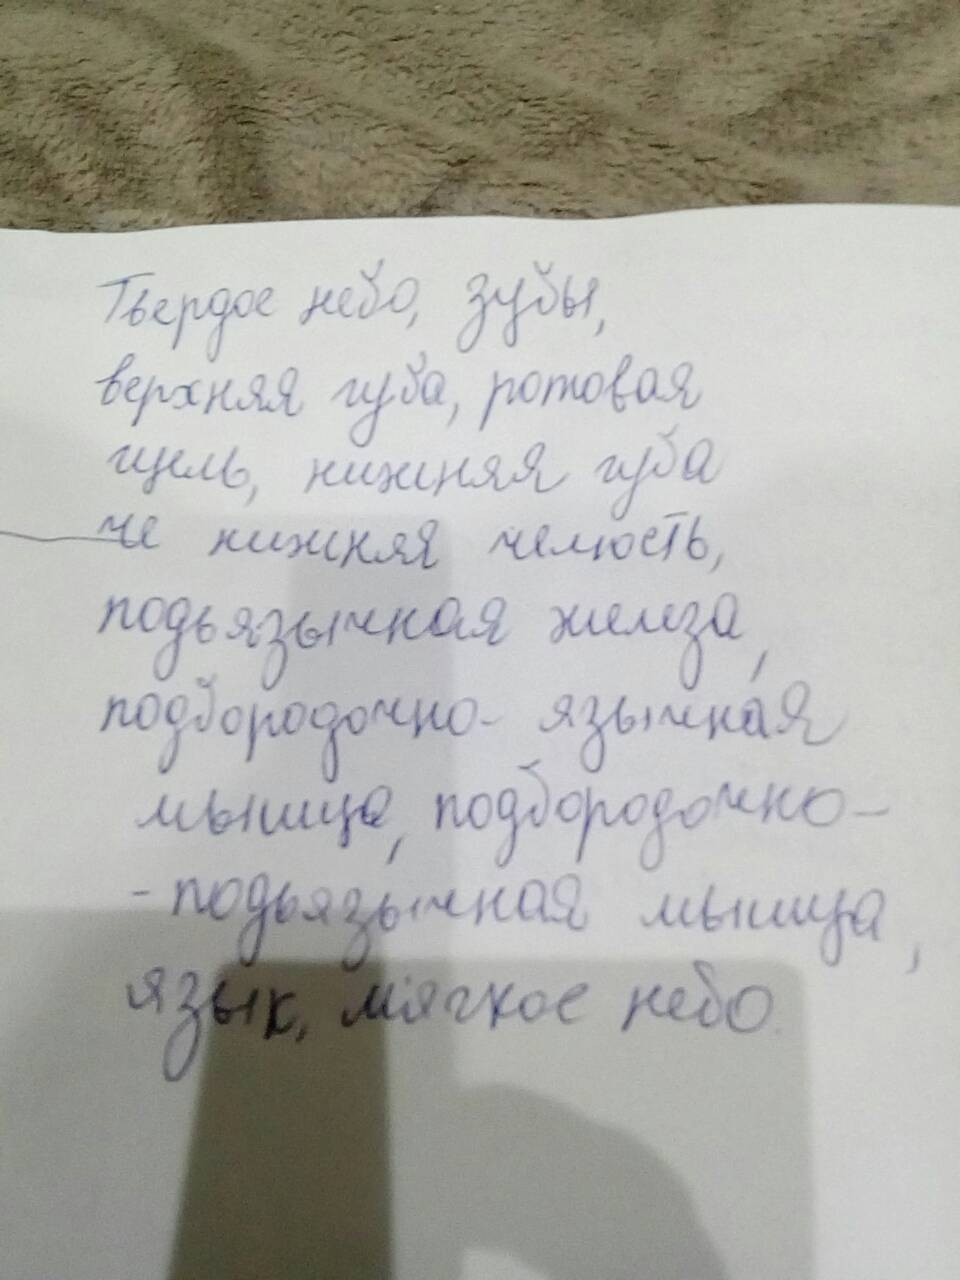 Твердое небо, зубы,
верхняя губа, ротовая
щель, нижняя губа
че нижняя челюсть,
подьязычная железа,
подбородочно- язычная
мышца, подбородочно-
-подьязычная мышца,
язык, мягкое небо.